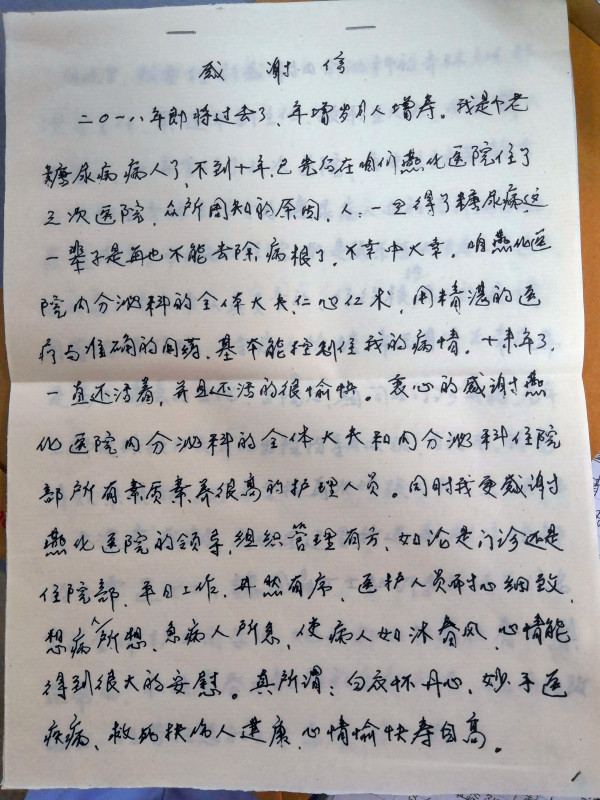 感谢信
二〇一八年即将过去了、年增岁月人增寿。我是个老
糖尿病病人了,不到十年,已先后在咱们燕化医院住了
三次医院,众所周知的原因,人:一旦得了糖尿病,这
一辈子是再也不能去除病根了,不幸中大幸,咱燕化医
院内分泌科的全体大夫,仁心仁术,用精湛的医
疗与准确的用药、基本能控制住我的病情。十来年了,
一直还活着,并且还活的很愉快。衷心的感谢燕
化医院内分泌科的全体大夫和内分泌科住院
部所有素质素养很高的护理人员。同时我更感谢
燕化医院的领导,组织管理有方,如论是门诊还是
住院部、平日工作、井然有序、医护人员耐心细致,
想病人所想、急病人所急,使病人如沐春风,心情能
得到很大的安慰。真所谓:白衣怀丹心,妙手医
疾病、救死扶伤人建康,心情愉快寿自高。